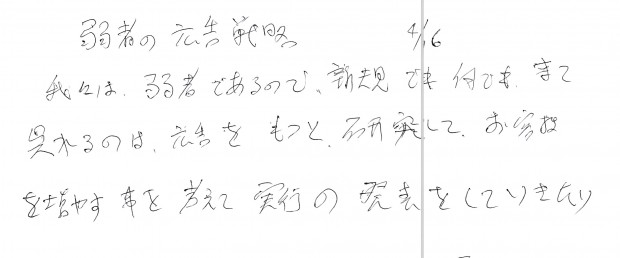 弱者の広告戦略 4/16
我々は、弱者であるので、新規でも何でも、まて
呉れるのは、広告をもっと、研究して、お客様
を増やす事を考えて実行の発表をしていきたい